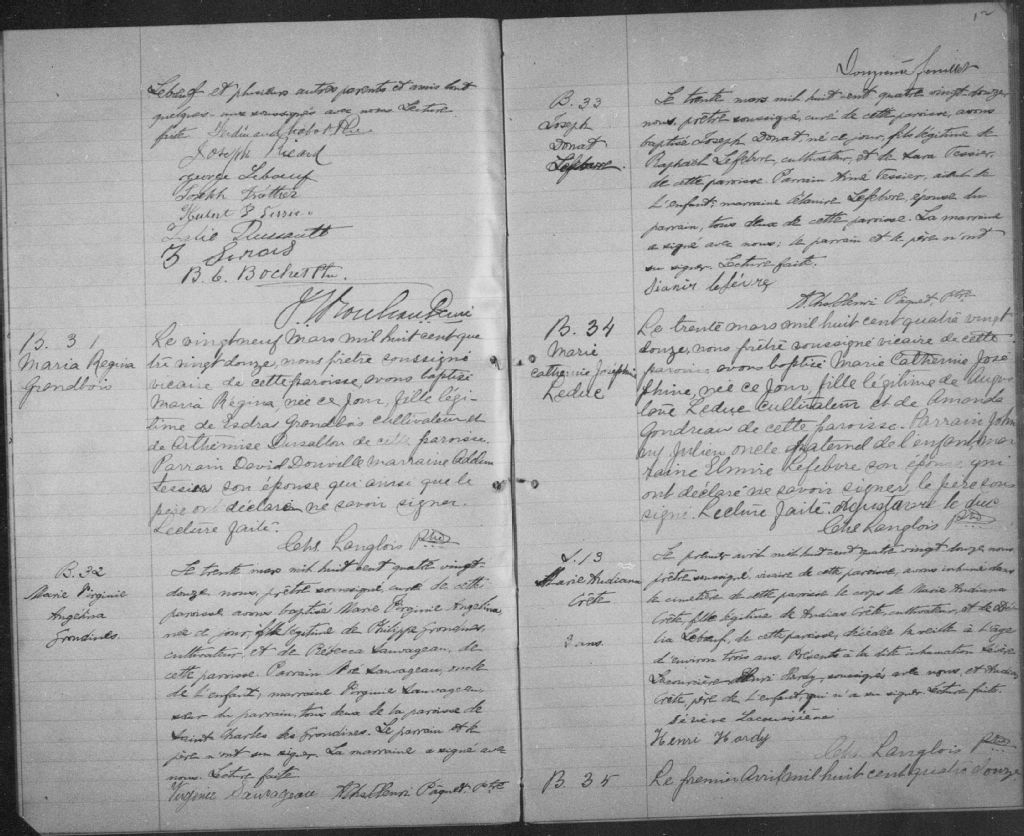 Leboeuf et plusieurs autres parents et amis dont
quelques-uns soussignés avec nous. Lecture
faite
Joseph Ricard
George Leboeuf
Joseph Trottier
Hubert
Julie Dussault
B. C. Bochet Ptre
B. 31
Maria Regina
Grondbois
Le vingt neuf Mars mil huit cent qua
tre vingt douze, nous prêtre soussigné
vicaire de cette paroisse, avons baptisé
Maria Régina, née ce jour, fille légi-
time de Esdras Grondbois cultivateur et
de Arthémise Dusablon de cette paroisse.
Parrain David Douville marraine
Tessier son épouse qui ainsi que le
père ont déclaré ne savoir signer.
Lecture faite.
Chs. Langlois Ptre
B. 32
Marie Virginie
Angélina
Grondines
Le trente mars mil huit cent quatre vingt
douze, nous, prêtre soussigné, curé de cette
paroisse avons baptisé Marie Virginie Angélina
née ce jour, fille légitime de Philippe Grondines,
cultivateur, et de Rébecca Sauvageau, de
cette paroisse. Parrain Noé Sauvageau, oncle
de l'enfant; marraine Virginie Sauvageau,
soeur du parrain, tous deux de la paroisse de
Saint Charles des Grondines. Le parrain et le
père n'ont su signer. La marraine a signé avec
nous. Lecture faite
Virginie Sauvageau Paquet. Ptre
12
Douzième feuillet
B. 33
Joseph
Donat
Lefebvre.
Le trente mars mil huit cent quatre vingt douze,
nous, prêtre soussigné, curé de cette paroisse, avons
baptisé Joseph Donat, né ce jour, fils légitime de
Raphaël Lefebvre, cultivateur, et de Lara Tessier,
de cette paroisse. Parrain Aimé Tessier, aïeul de
l'enfant; marraine Lefebvre, épouse du
parrain, tous deux de cette paroisse. La marraine
a signé avec nous; le parrain et le père n'ont
su signer. Lecture faite.
lefévre
Paquet, Ptre
B. 34
Marie
Catherine Joséphine
Leduc
Le trente mars mil huit cent quatre vingt
douze, nous prêtre soussigné vicaire de cette
paroisse avons baptisé Marie Catherine José
phine, née ce jour, fille légitime de Augus
tave Leduc cultivateur et de Amanda
Gondreau de cette paroisse. Parrain
Julien oncle maternel de l'enfant, mar
raine Elmire Lefebvre son épouse qui
ont déclaré ne savoir signer, le père sous
signé. Lecture faite. le duc
Chs Langlois Ptre
S. 13
Marie Andiana
Crête
3 ans.
Le premier avril mil huit cent quatre vingt douze, nous
prêtre soussigné vicaire de cette paroisse, avons inhumé dans
le cimetière de cette paroisse le corps de Marie Andiana
Crête, fille légitime de Crête, cultivateur, et de Dé
lia Leboeuf, de cette paroisse, décédée la veille à l'âge
d'environ trois ans. Présents à la dite inhumation Sévère
Lacoursière, Henri Hardy, soussignés avec nous, et
Crête, père de l'enfant, qui n'a su signer. Lecture faite.
Sévère Lacoursière
Henri Hardy
Chs. Langlois Ptre
B. 35
Le premier Avril mil huit cent quatre douze